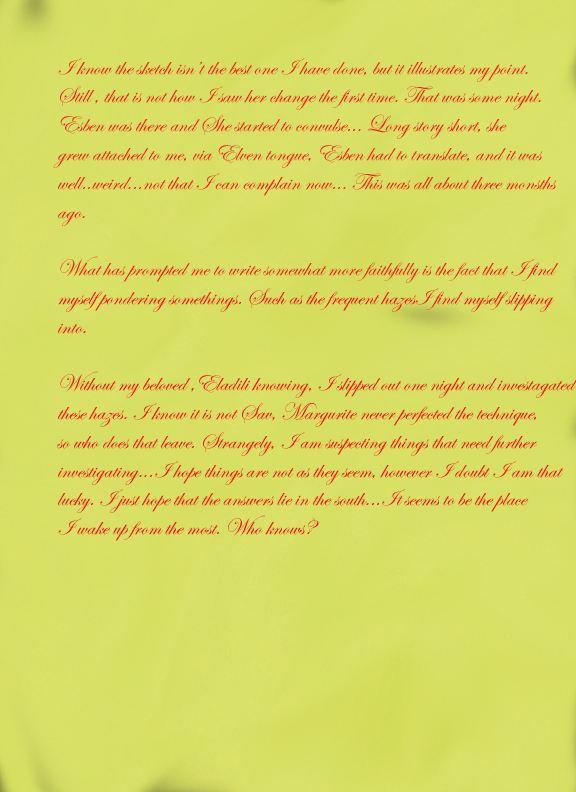 I know the sketch isn't the best one I have done, but it illustrates my point.
Still , that is not how I saw her change the first time. That was some night.
Esben was there and She started to convulse... Long story short, she
grew attached to me, via Elven tongue, Esben had to translate, and it was
well..weird...not that I can complain now... This was all about three monsths
ago.
What has prompted me to write somewhat more faithfully is the fact that I find
myself pondering somethings. Such as the frequent hazes I find myself slipping
into.
Without my beloved , Eladili knowing, I slipped out one night and investagated
these hazes. I know it is not Sav, Margurite never perfected the technique,
so who does that leave. Strangely, I am suspecting things that need further
investigating...I hope things are not as they seem, however I doubt I am that
lucky. I just hope that the answers lie in the south...It seems to be the place
I wake up from the most. Who knows?